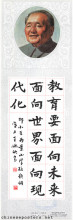 教育要面向未来
面向世界面向现
代化
chineseposters.net